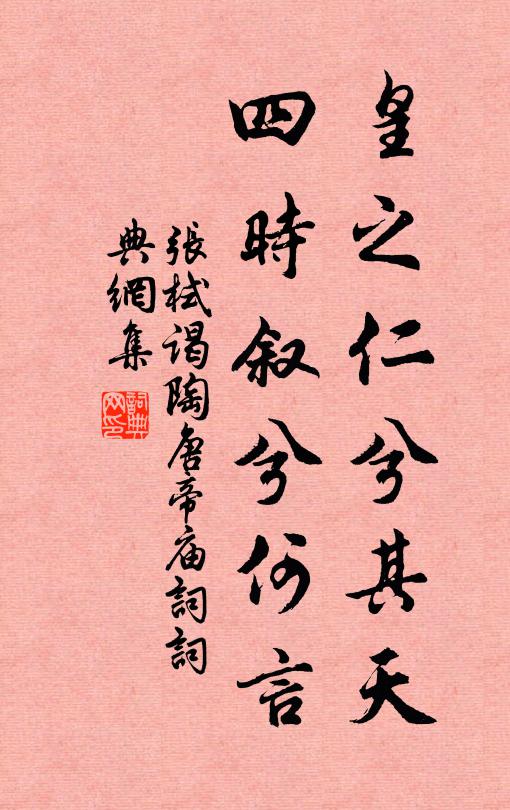 皇之仁兮其天
四時叙兮何言
張栻谒陶唐帝庙詞詞
典網集
詞典网印